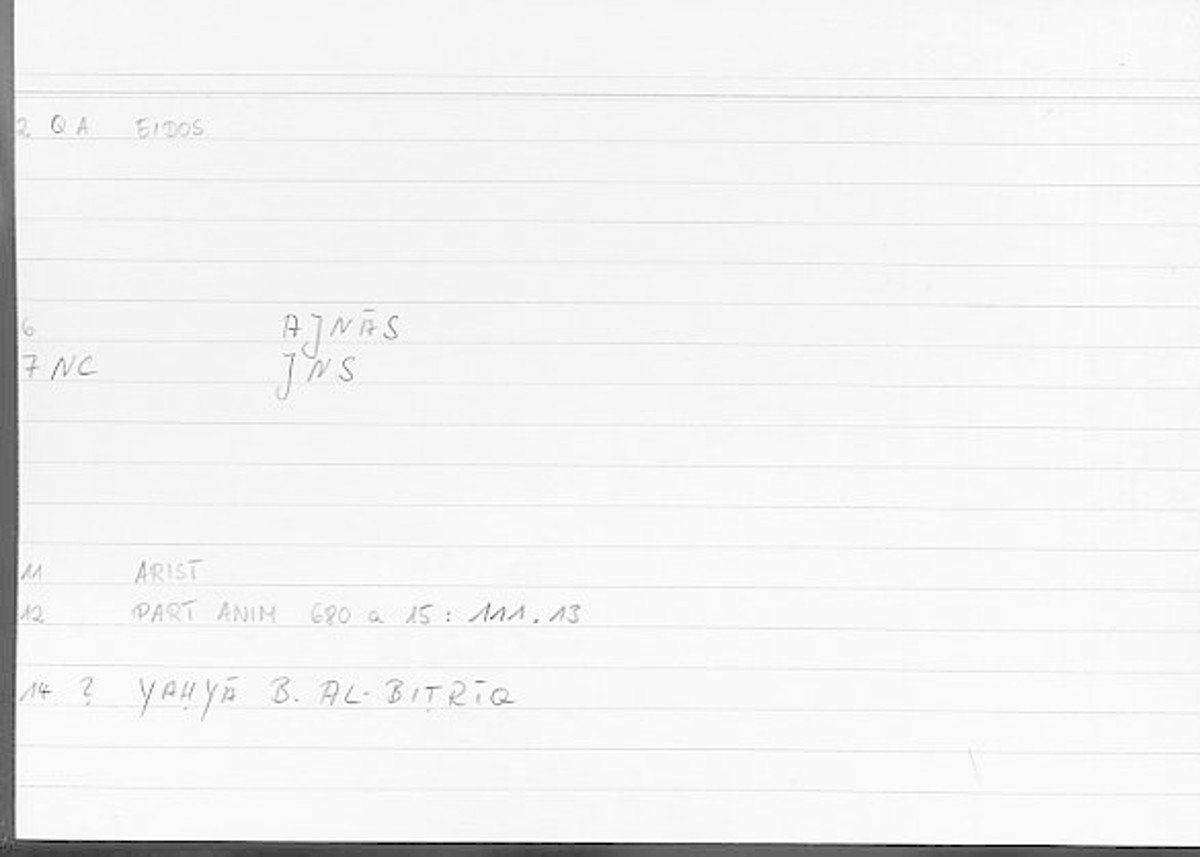 2 QA EIDOS
6 AJNĀS
7 NC JNS
11 ARIST
12 PART ANIM 680 a 15 : 111.13
14 ? YAḤYĀ B. AL-BIṬRĪQ